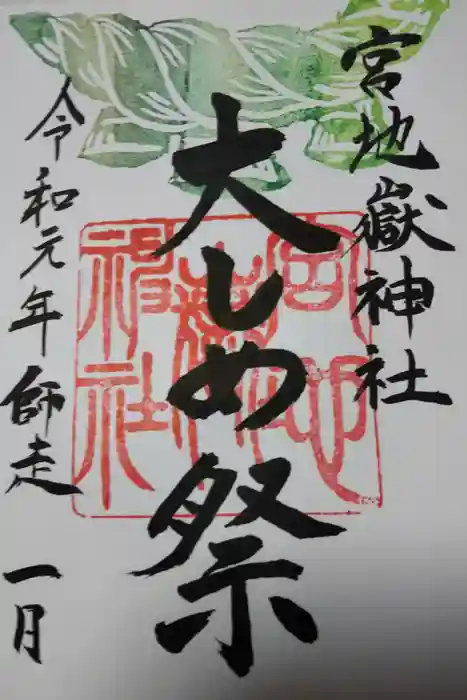 宮地嶽神社
大しめ祭
令和元年師走一月
宮地嶽神社